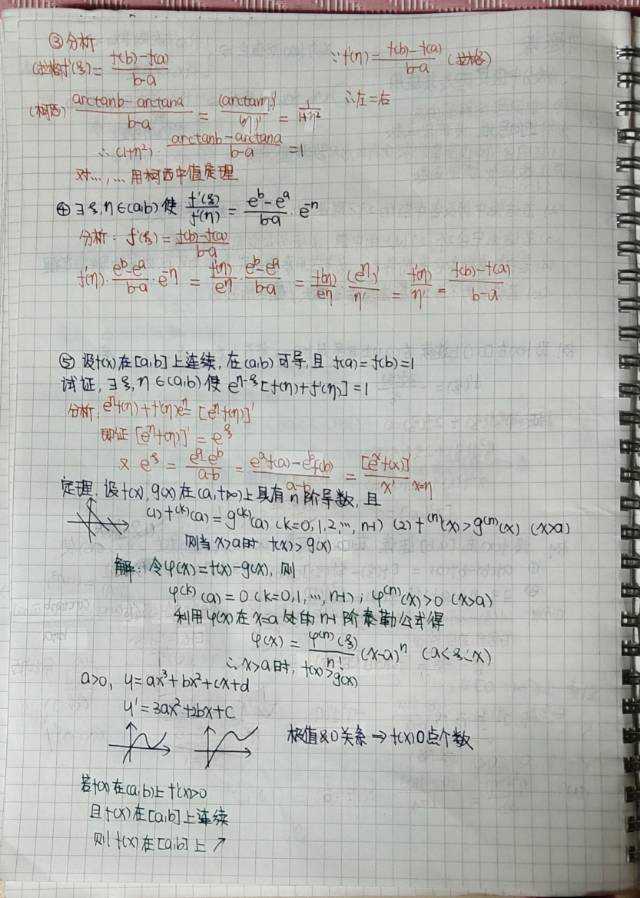 ③分析
(拉格) f'(ξ) = (f(b)-f(a))/(b-a)
∵ f'(η) = (f(b)-f(a))/(b-a) (拉格)
(柯西) (arctanb-arctana)/(b-a) = (arctanη)'/(η)' = 1/(1+η²)
∴左=右
∴ (1+η²)·(arctanb-arctana)/(b-a) = 1
对…,…用柯西中值定理
④ ∃ξ,η∈(a,b)使 f'(ξ)/f'(η) = (e^b-e^a)/(b-a)·e^-η
分析: f'(ξ) = (f(b)-f(a))/(b-a)
f'(η)·(e^b-e^a)/(b-a)·e^-η = f'(η)/e^η·(e^b-e^a)/(b-a) = f'(η)/e^η (e^η)'/η' = f'(η)/η' = (f(b)-f(a))/(b-a)
⑤ 设f(x)在[a,b]上连续,在(a,b)可导,且 f(a)=f(b)=1
试证,∃ξ,η∈(a,b)使 e^(η-ξ)[f(η)+f'(η)]=1
分析, e^η f(η)+f'(η)e^η = [e^η f(η)]'
即证 [e^η f(η)]' = e^ξ
又 e^ξ = (e^a-e^b)/(a-b) = (e^a f(a)-e^b f(b))/(a-b) = [e^x f(x)]'/x' x=η
定理,设f(x),g(x)在(a,+∞)上具有n阶导数,且
(1) f^(k)(a)=g^(k)(a) (k=0,1,2,…,n-1) (2) f^(n)(x)>g^(n)(x) (x>a)
则当x>a时 f(x)>g(x)
解:令φ(x)=f(x)-g(x),则
φ^(k)(a)=0 (k=0,1,…,n-1); φ^(n)(x)>0 (x>a)
利用φ(x)在x=a处的n-1阶泰勒公式得
φ(x) = φ^(n)(ξ)/n! (x-a)^n (a<ξ<x)
∴x>a时, f(x)>g(x)
a>0, y=ax³+bx²+cx+d
y'=3ax²+2bx+c
极值与0关系→f(x)0点个数
若f(x)在(a,b)上f'(x)>0
且f(x)在[a,b]上连续
则f(x)在[a,b]上↗